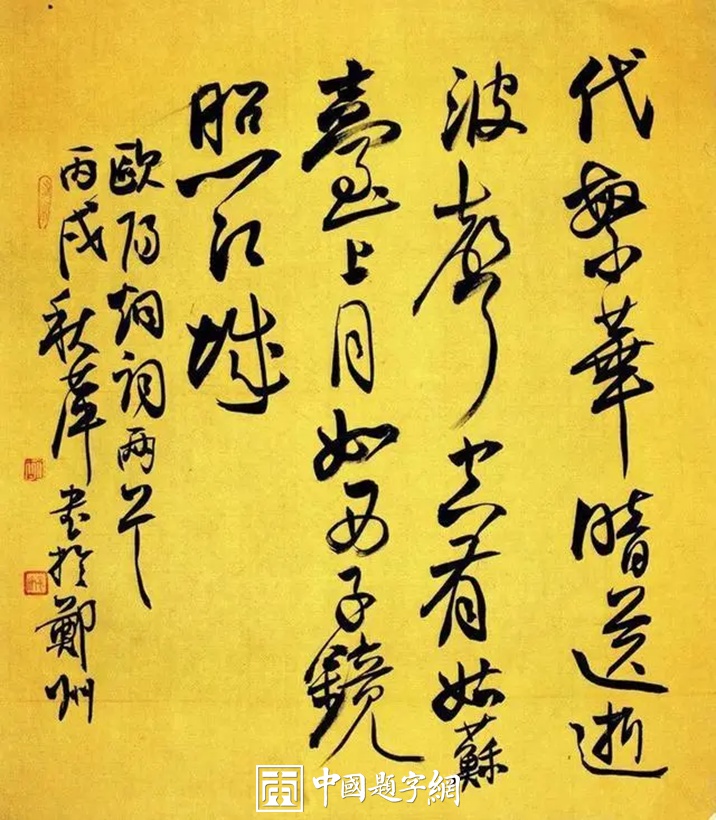 代繁華暗逐逝
波聲空有姑蘇
臺上月如西子鏡
照江城
歐陽炯詞兩
丙戌秋 書於鄭州
中國題字網